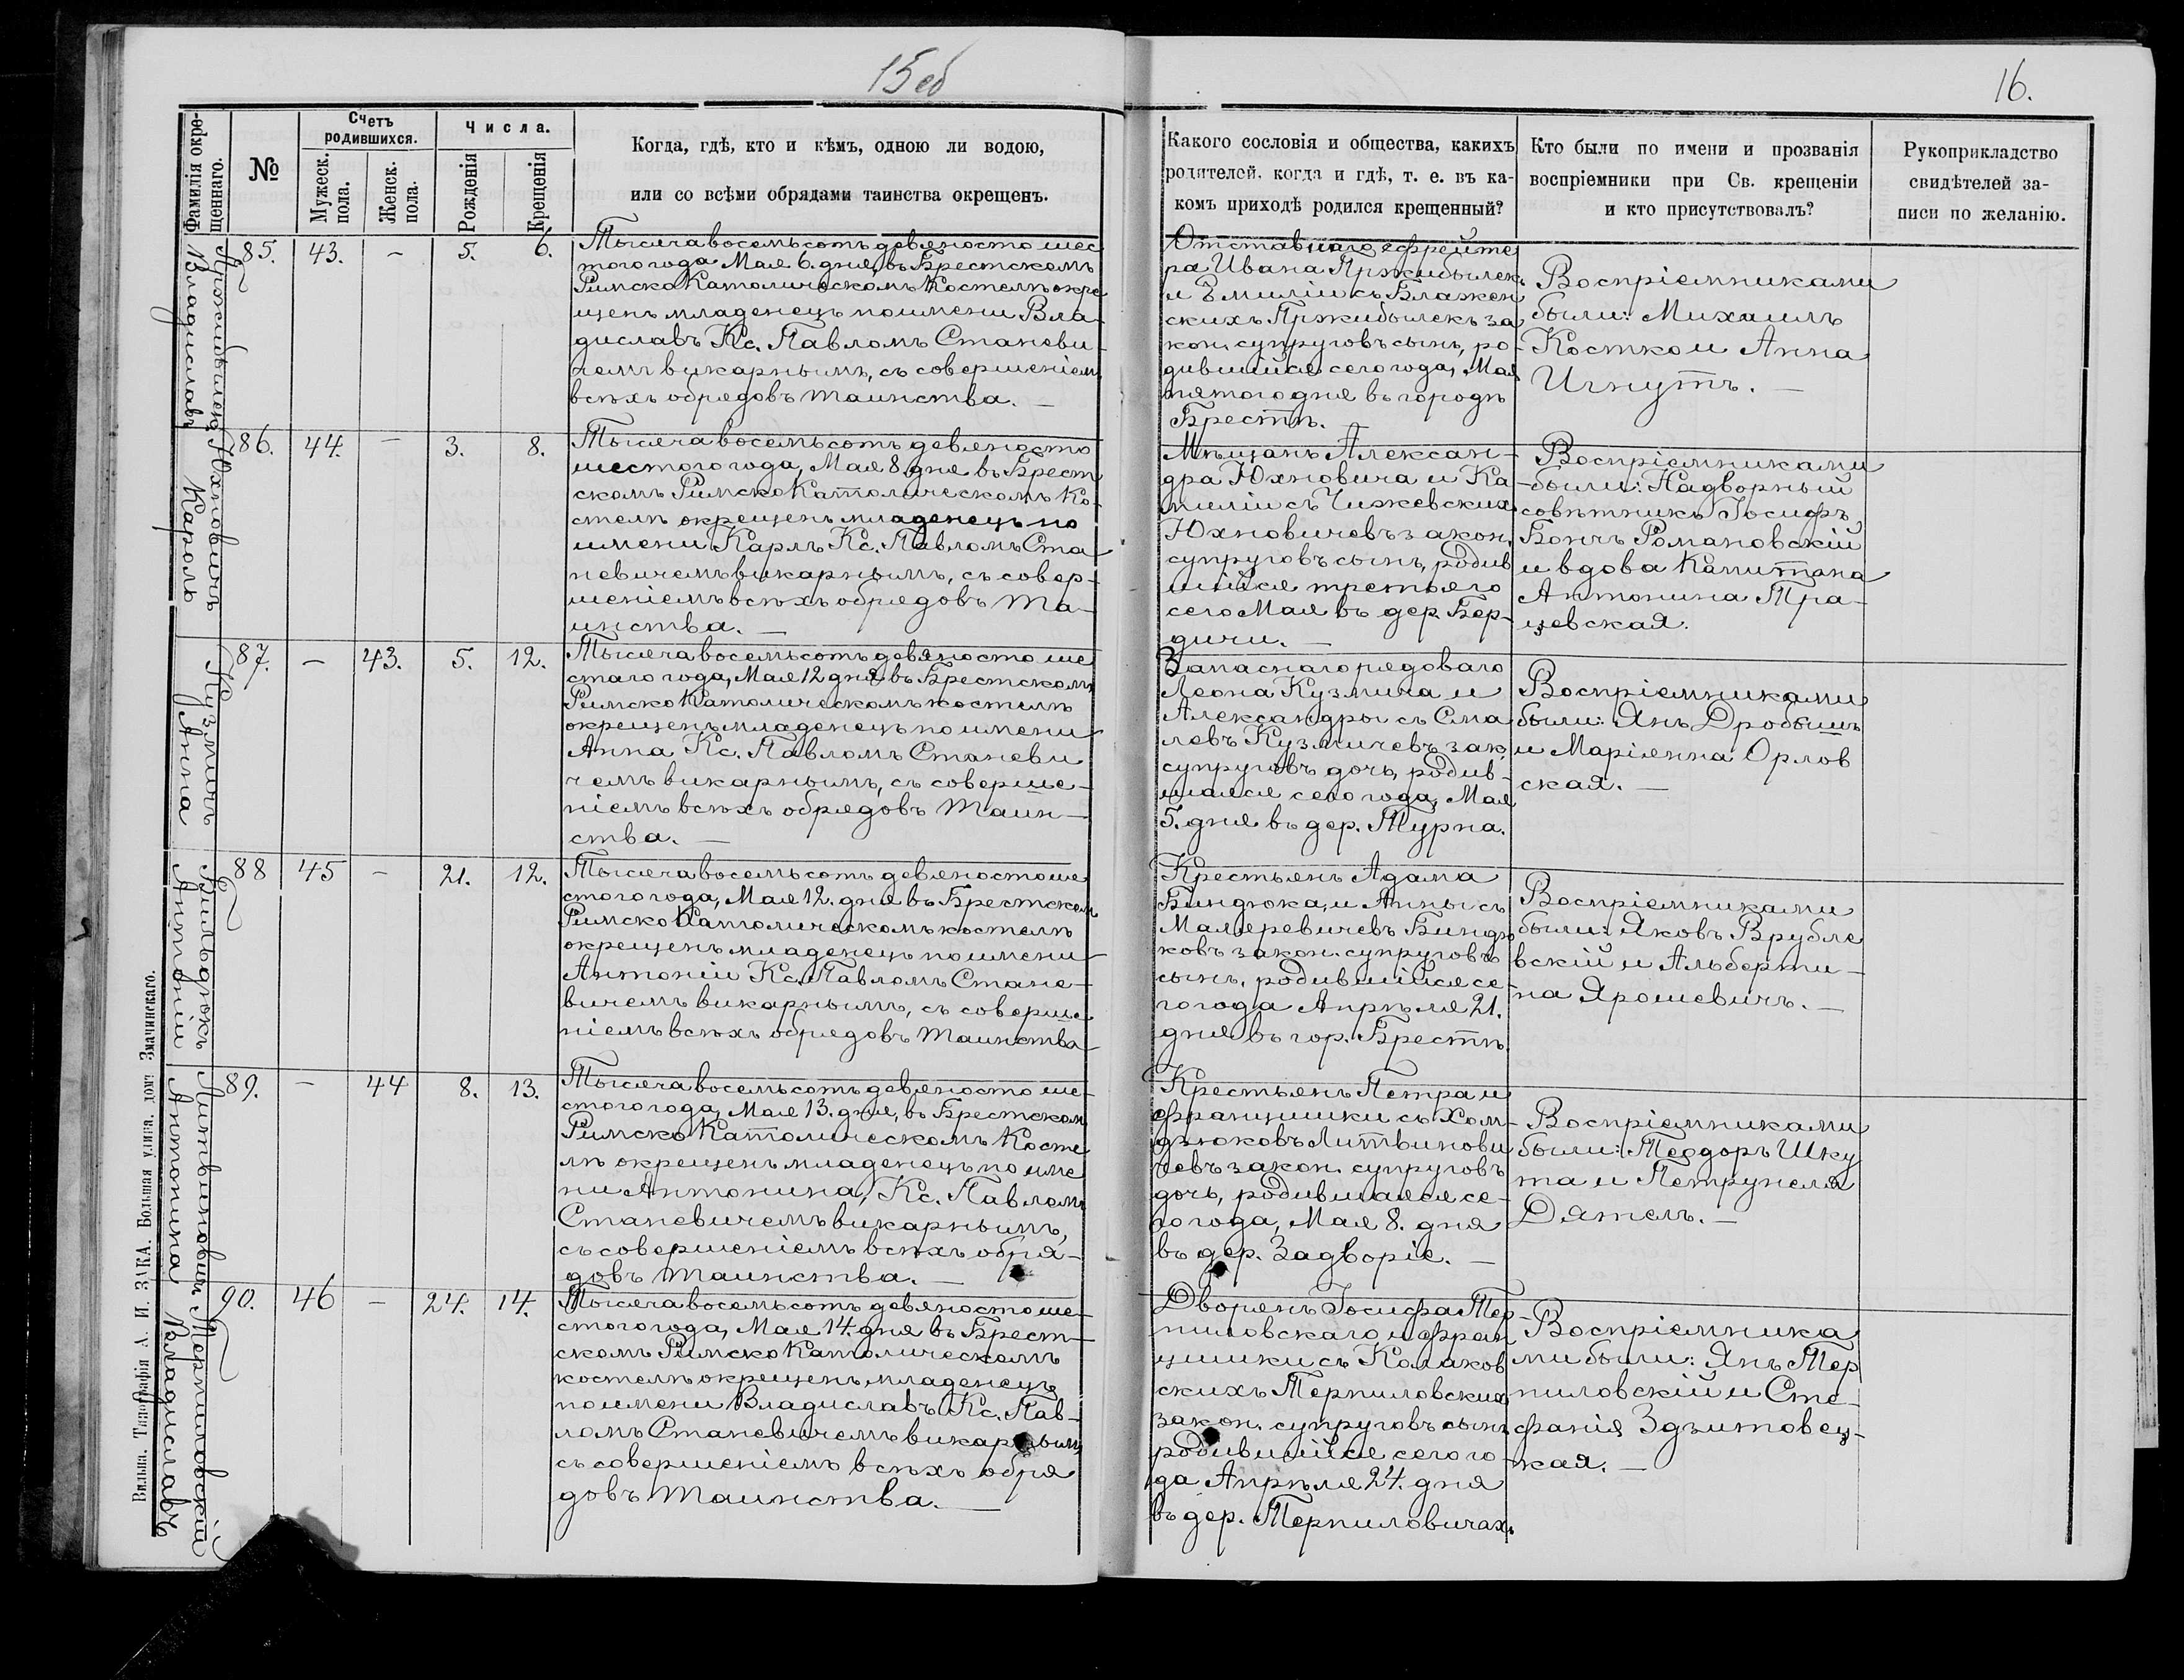 15об
16.
Фамилія окре-
щеннаго.
№
Счетъ
родившихся.
Мужеск.
пола.
Женск.
пола.
Числа.
Рожденія
Крещенія
Когда, гдѣ, кто и кѣмъ, одною ли водою,
или со всѣми обрядами таинства окрещенъ.
Какого сословія и общества, какихъ
родителей, когда и гдѣ, т. е. въ ка-
комъ приходѣ родился крещенный?
Кто были по имени и прозванія
воспріемники при Св. крещеніи
и кто присутствовалъ?
Рукоприкладство
свидѣтелей за-
писи по желанію.
Пржибылекъ
Владиславъ
85. 43. – 5. 6.
Тысяча восемьсотъ девяносто шес
того года Мая 6. дня, въ Брестскомъ
Римско Католическомъ Костелѣ окре
щенъ младенецъ по имени Вла-
диславъ Кс. Павломъ Станеви-
чемъ викарнымъ, съ совершеніемъ
всѣхъ обрядовъ таинства. –
Отставнаго ефрейто
ра Ивана Пржибылек
и Эмиліи съ Блажен
скихъ Пржибылекъ за
кон. супруговъ сынъ, ро-
дившійся сего года, Мая
пятого дня въ городѣ
Брестѣ. –
Воспріемниками
были: Михаилъ
Костко и Анна
Игнутъ. –
Юхновичъ
Кароль
86. 44. – 3. 8.
Тысяча восемьсотъ девяносто
шестого года, Мая 8. дня въ Брест
скомъ Римско Католическомъ Ко-
стелѣ окрещенъ младенецъ по
имени Карлъ Кс. Павломъ Ста
невичемъ викарнымъ, съ совер-
шеніемъ всѣхъ обрядовъ Та-
инства. –
Мѣщанъ Алексан-
дра Юхновича и Ка-
миліи съ Чижевскихъ
Юхновичевъ закон.
супруговъ сынъ, родив
шійся третьяго
сего Мая въ дер. Бер-
дичи. –
Воспріемниками
были: Надворный
совѣтникъ Іосифъ
Бончъ Романовскій
и вдова Капитана
Антонина Тра-
цевская.
Кузмичъ
Анна
87. – 43. 5. 12.
Тысяча восемьсотъ девяносто ше
стаго года, Мая 12 дня въ Брестскомъ
Римско Католическомъ костелѣ
окрещенъ младенецъ по имени
Анна Кс. Павломъ Станеви
чемъ викарнымъ, съ соверше-
ніемъ всѣхъ обрядовъ Таин-
ства. –
Запаснаго рядоваго
Леона Кузмича и
Александры съ Сма
левъ Кузмичевъ зак.
супруговъ дочь, родив-
шаяся сего года, Мая
5. дня въ дер. Турна.
Воспріемниками
были: Янъ Дробышъ
и Маріянна Орлов
ская. –
Антоній
88 45 – 21. 12.
Тысяча восемьсотъ девяносто ше
стого года, Мая 12. дня въ Брестском
Римско Католическомъ костелѣ
окрещенъ младенецъ по имени
Антоніи Кс. Павломъ Стане-
вичемъ викарнымъ, съ соверше
ніемъ всѣхъ обрядовъ Таинства
Крестьянъ Адама
Биндюка, и Анны съ
Малеревичевъ Биндю
ковъ закон. супруговъ
сынъ, родившійся се-
го года Апрѣля 21.
дня въ гор. Брестѣ.
Воспріемниками
были: Яковъ Врубле
вскій и Альберти-
на Ярошевичъ. –
Литвиновичъ
Антонина
89. – 44 8. 13.
Тысяча восемьсотъ девяносто ше-
стого года, Мая 13. дня, въ Брестском
Римско Католическомъ Косте
лѣ окрещенъ младенецъ по име
ни Антонина, Кс. Павломъ
Станевичемъ викарнымъ,
съ совершеніемъ всѣхъ обря-
довъ таинства. –
Крестьянъ Петра и
Францишки съ Хом-
дзюковъ Литвинови
чевъ закон. супруговъ
дочь, родившаяся се-
го года, Мая 8. дня
въ дер. Задворіе. –
Воспріемниками
были: Теодоръ Шку
та и Петрунеля
Дятелъ. –
Терпиловскій
Владиславъ
90. 46 – 24. 14.
Тысяча восемьсотъ девяносто ше-
стого года, Мая 14. дня въ Брест-
скомъ Римско Католическомъ
костелѣ окрещенъ, младенецъ
по имени Владиславъ Кс. Пав-
ломъ Станевичемъ викарнымъ
съ совершеніемъ всѣхъ обря
довъ Таинства. –
Дворянъ Іосифа Тер-
пиловскаго и Фран
цишки съ Колаков
скихъ Терпиловских
закон. супруговъ сынъ
родившійся сего го-
да Апрѣля 24. дня
въ дер. Терпиловичахъ
Воспріемника
ми были: Янъ Тер
пиловскій и Сте-
фанія Здзитовец-
кая. –
Вильна. Типографія А. И. ЗАКА. Большая улица. домъ Значинскаго.